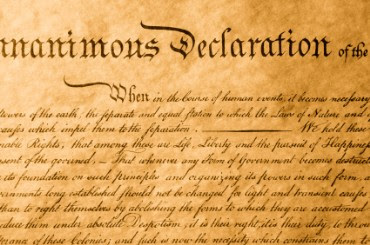 nanimous Declaration of the
When in the Course of human events, it becomes necessary
powers of the earth, the separate and equal station to which the Laws of Nature and
causes which impel them to the separation. We hold these
nable Rights, that among these are Life, Liberty and the pursuit of Happiness
onsent of the governed. — That whenever any Form of Government becomes destructi
its foundation on such principles and organizing its powers in such form, a
vernments long established should not be changed for light and transient causes
than to right themselves by abolishing the forms to which they are accustomed
duce them under absolute Despotism, it is their right, it is their duty, to thro
erance of these Colonies; and such is now the necessity which constrains them